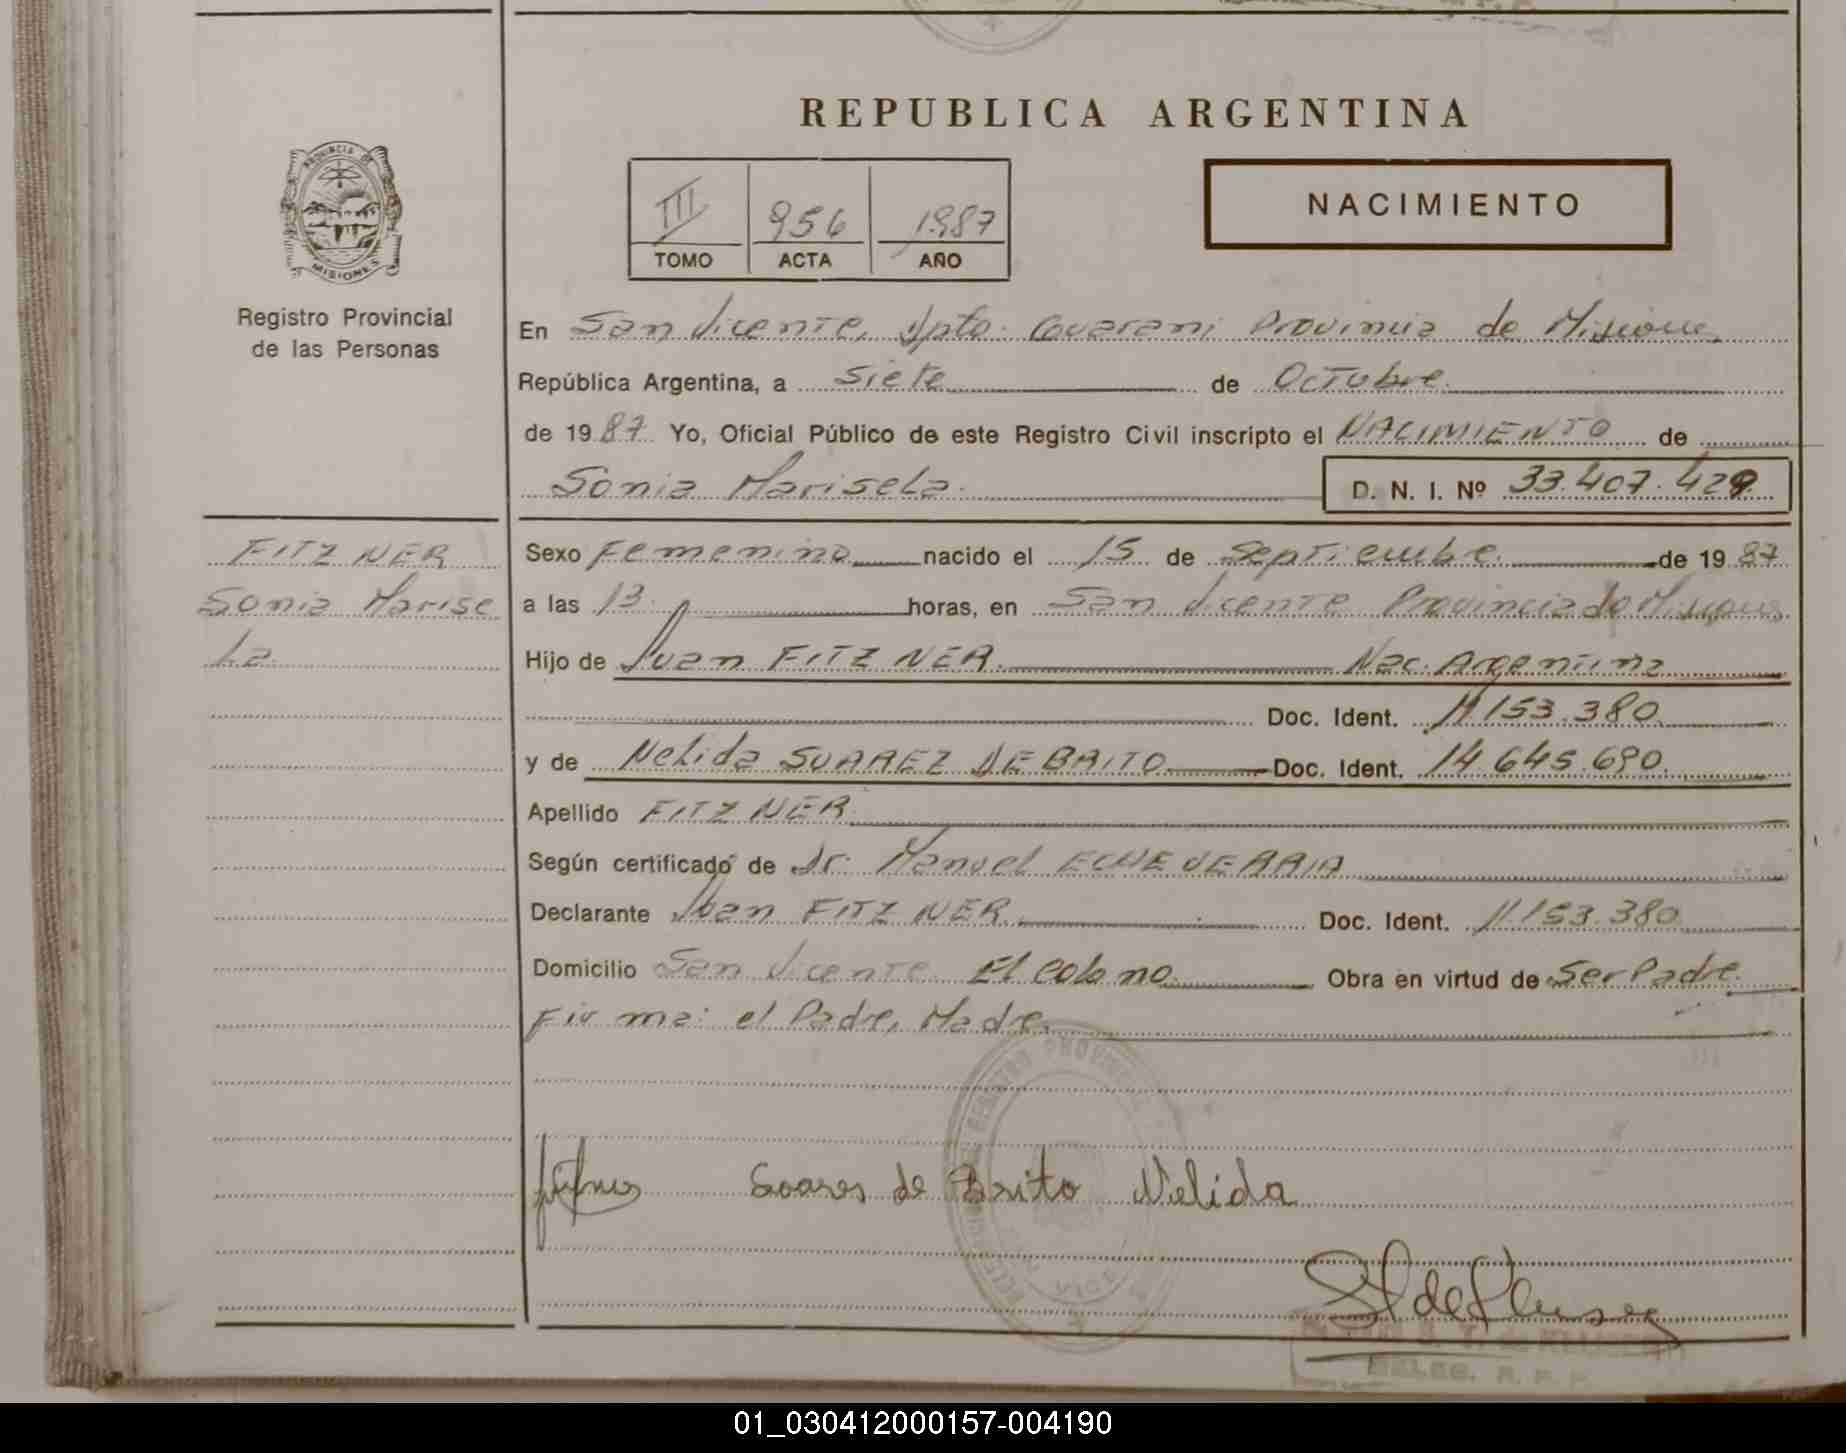 REPUBLICA ARGENTINA
NACIMIENTO
III 956 1987
TOMO ACTA AÑO
PROVINCIA DE
MISIONES
Registro Provincial
de las Personas
En San Vicente, Dpto. Guarani Provincia de Misiones
República Argentina, a Siete de Octubre
de 1987 Yo, Oficial Público de este Registro Civil inscripto el NACIMIENTO de
Sonia Marisela. D. N. I. Nº 33.407.429
FITZ NER
Sonia Marise
La
Sexo Femenino nacido el 15 de Septiembre. de 1987
a las 13. horas, en San Vicente Provincia de Misiones
Hijo de Juan FITZ NER. Nac. Argentina
Doc. Ident. 11.153.380
y de Nelida SUAREZ DE BRITO Doc. Ident. 14.645.690.
Apellido FITZ NER.
Según certificado de Dr. Manuel ECHEVERRIA
Declarante Juan FITZ NER. Doc. Ident. 11.153.380
Domicilio San Vicente El Colono. Obra en virtud de Ser Padre.
Firma: el Padre, Madre.
Soares de Brito Nelida
01_030412000157-004190